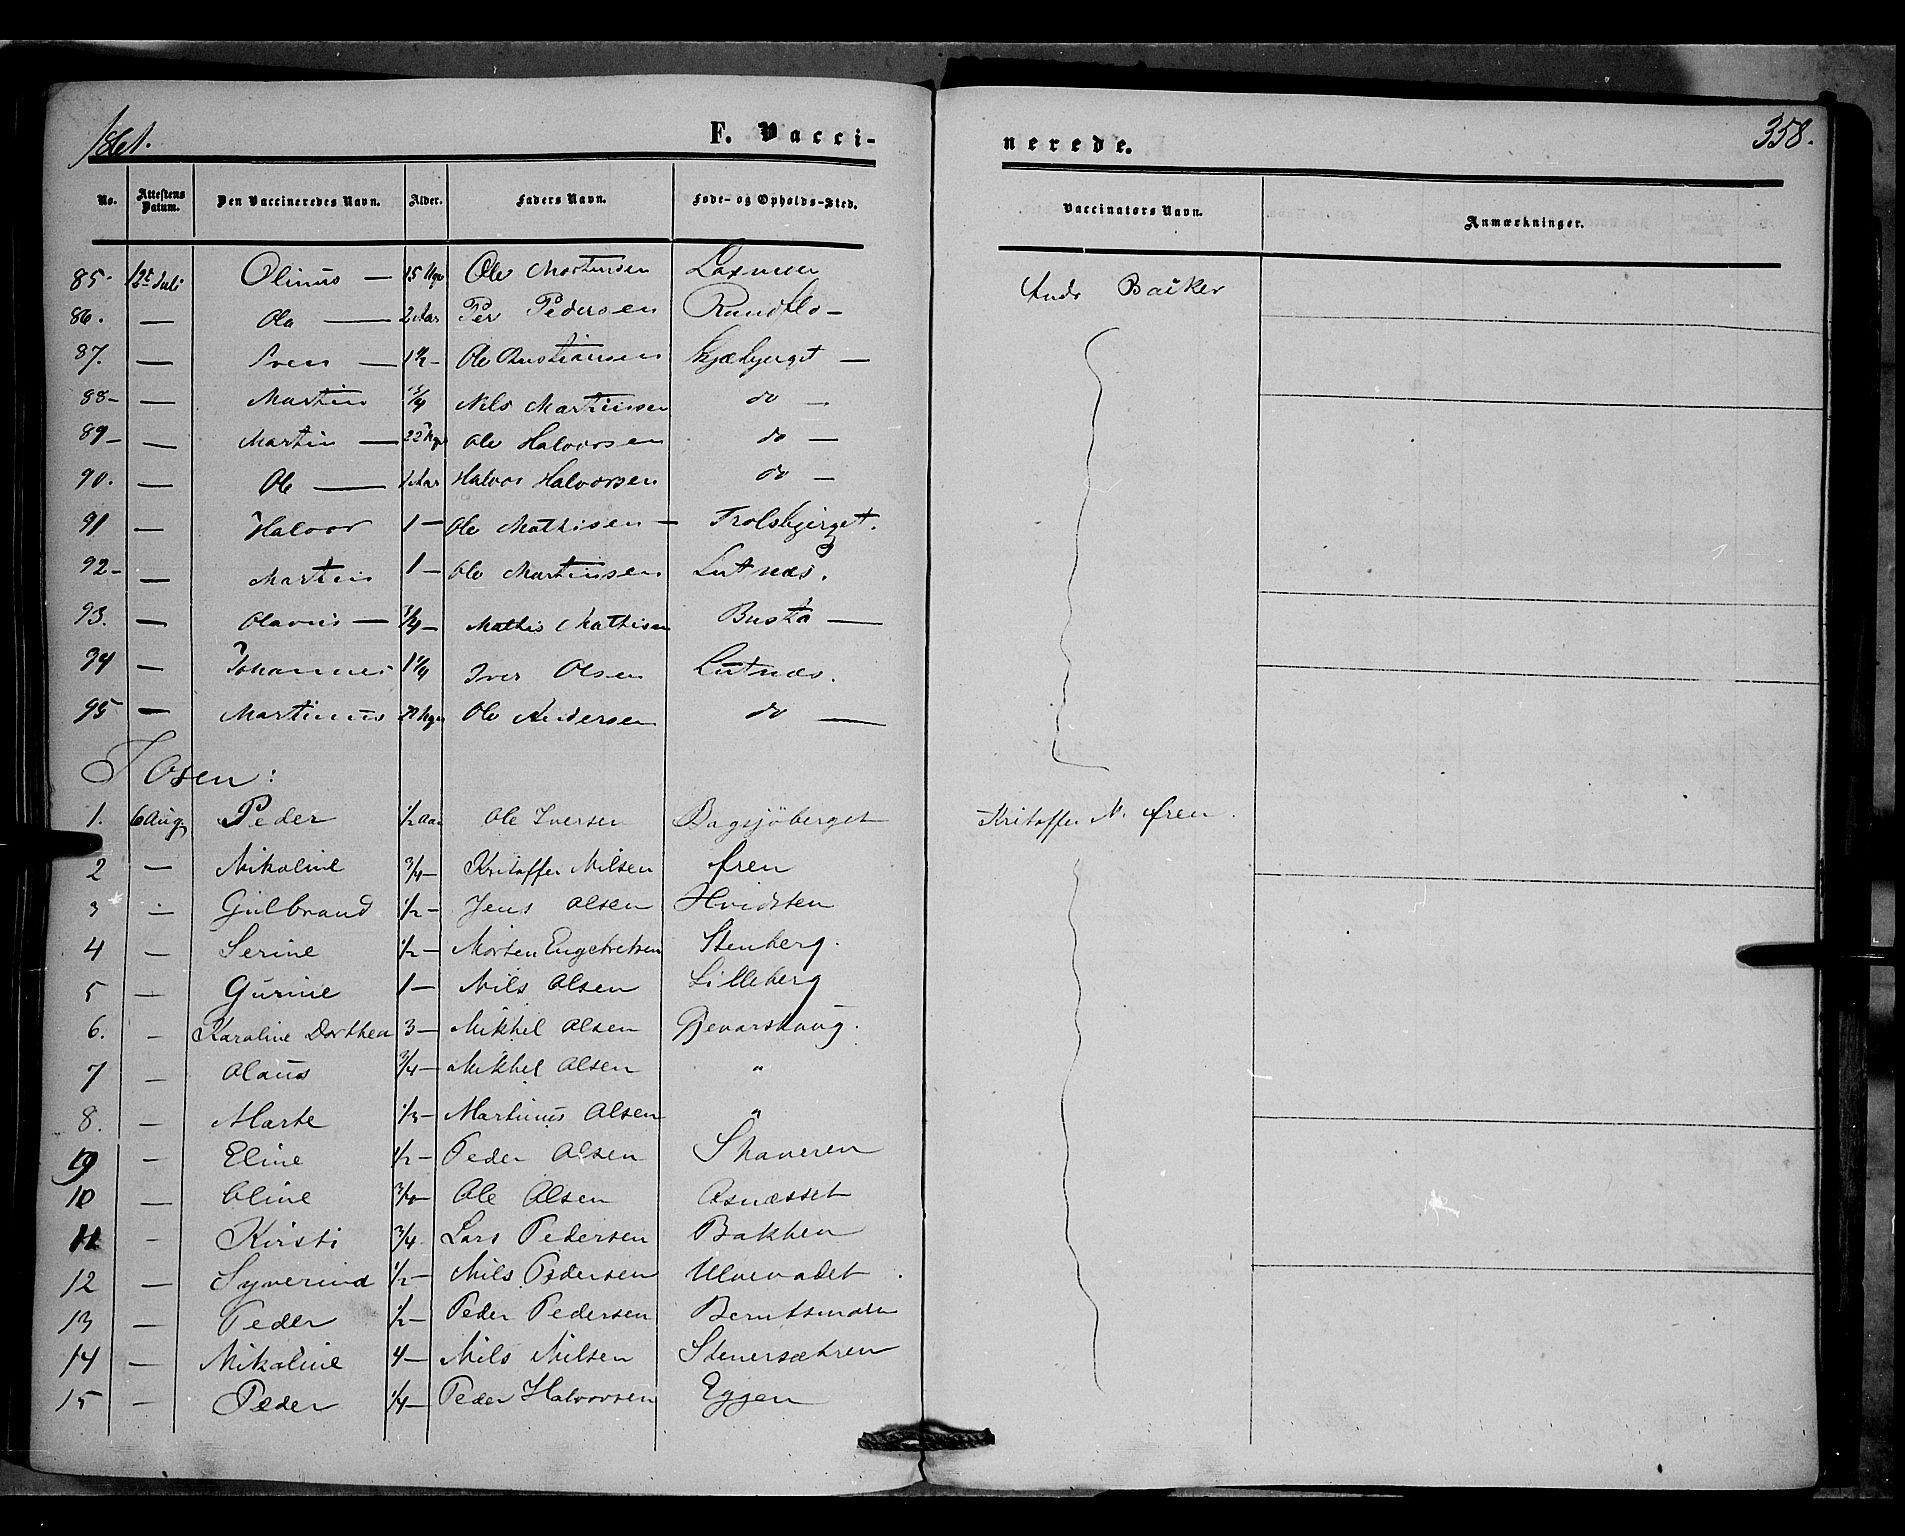 1861. F. Vacci- nerede. 358.
No. Attestens Datum. Den Vaccineredes Navn. Alder. Faders Navn. Føde- og Opholds-Sted. Vaccinators Navn. Anmærkninger.
85- 12te Juli Olinus — 15 Uger Ole Martinsen Ands Bakker
86. — Ola — 2 Aar Per Pedersen Rundflo —
87. — Sven — 1½ - Ole Christiansen Skjæbjerget —
88- — Martin Nils Martinsen do —
89- — Martin — 22 Uger Ole Halvorsen do —
90. — Ole — 1 Aar Halvor Halvorsen do —
91 — Halvor 1 — Ole Mathisen — Trolsbjerget.
92- — Martin 1 — Ole Martinsen Lutnæs.
93. — Olavus — 3/4 — Mathis Mathisen Busta —
94 — Johannes 1 1/4 Iver Olsen Lutnæs.
95 — Martinus Uger Ole Andersen do —
I Osen:
1. 6 Aug. Peder ½ Aar Ole Iversen Bagsjöberget Kristoffer N. Øren.
2 — Nikoline 3/4 — Kristoffer Nilsen Øren
3 — Gulbrand 1/2 — Jens Olsen Hvidsten
4 — Serine 1/2 — Morten Engebretsen Stenberg.
5 — Gurine 1 — Nils Olsen Lilleberg
6. — Karoline Dorthea 3 — Mikkel Olsen Gjevarshaug.
7 — Olaus 3/4 — Mikkel Olsen "
8. — Marte 1/3 — Martinus Olsen "
9 — Eline 1/2 — Peder Olsen Skaveren
10 — Oline Ole Olsen Osnæsset
11 — Kirsti 3/4 Lars Pedersen Bakken
12 — Syverine 1/2 — Nils Pedersen Ulvevadet.
13 — Peder 1/2 — Peder Pedersen Berntsmoen
14 — Nikoline 4 — Nils Nilsen Stenersætren
15 — Peder 1/4 — Peder Halvorsen Eggen